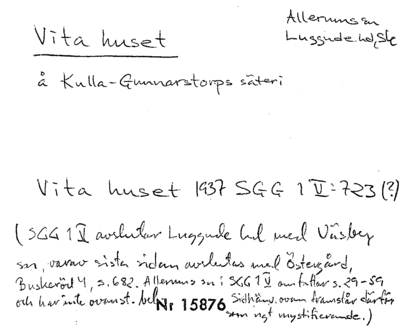 Vita huset
Allerums sn
Luggude hd, Sk
å Kulla-Gunnarstorps säteri
Vita huset 1937 SGG 1 V:723 (?)
(SGG 1 V avslutar Luggude hd med Väsby
sn, varav sista sidan avslutas med Östergård,
Buskeröd 4, s. 682. Allerums sn i SGG 1 V omfattar s. 29-59
och har inte ovanst. bel
Nr 15876
Sidhänv. ovan framstår därför
som ngt mystifierande.)